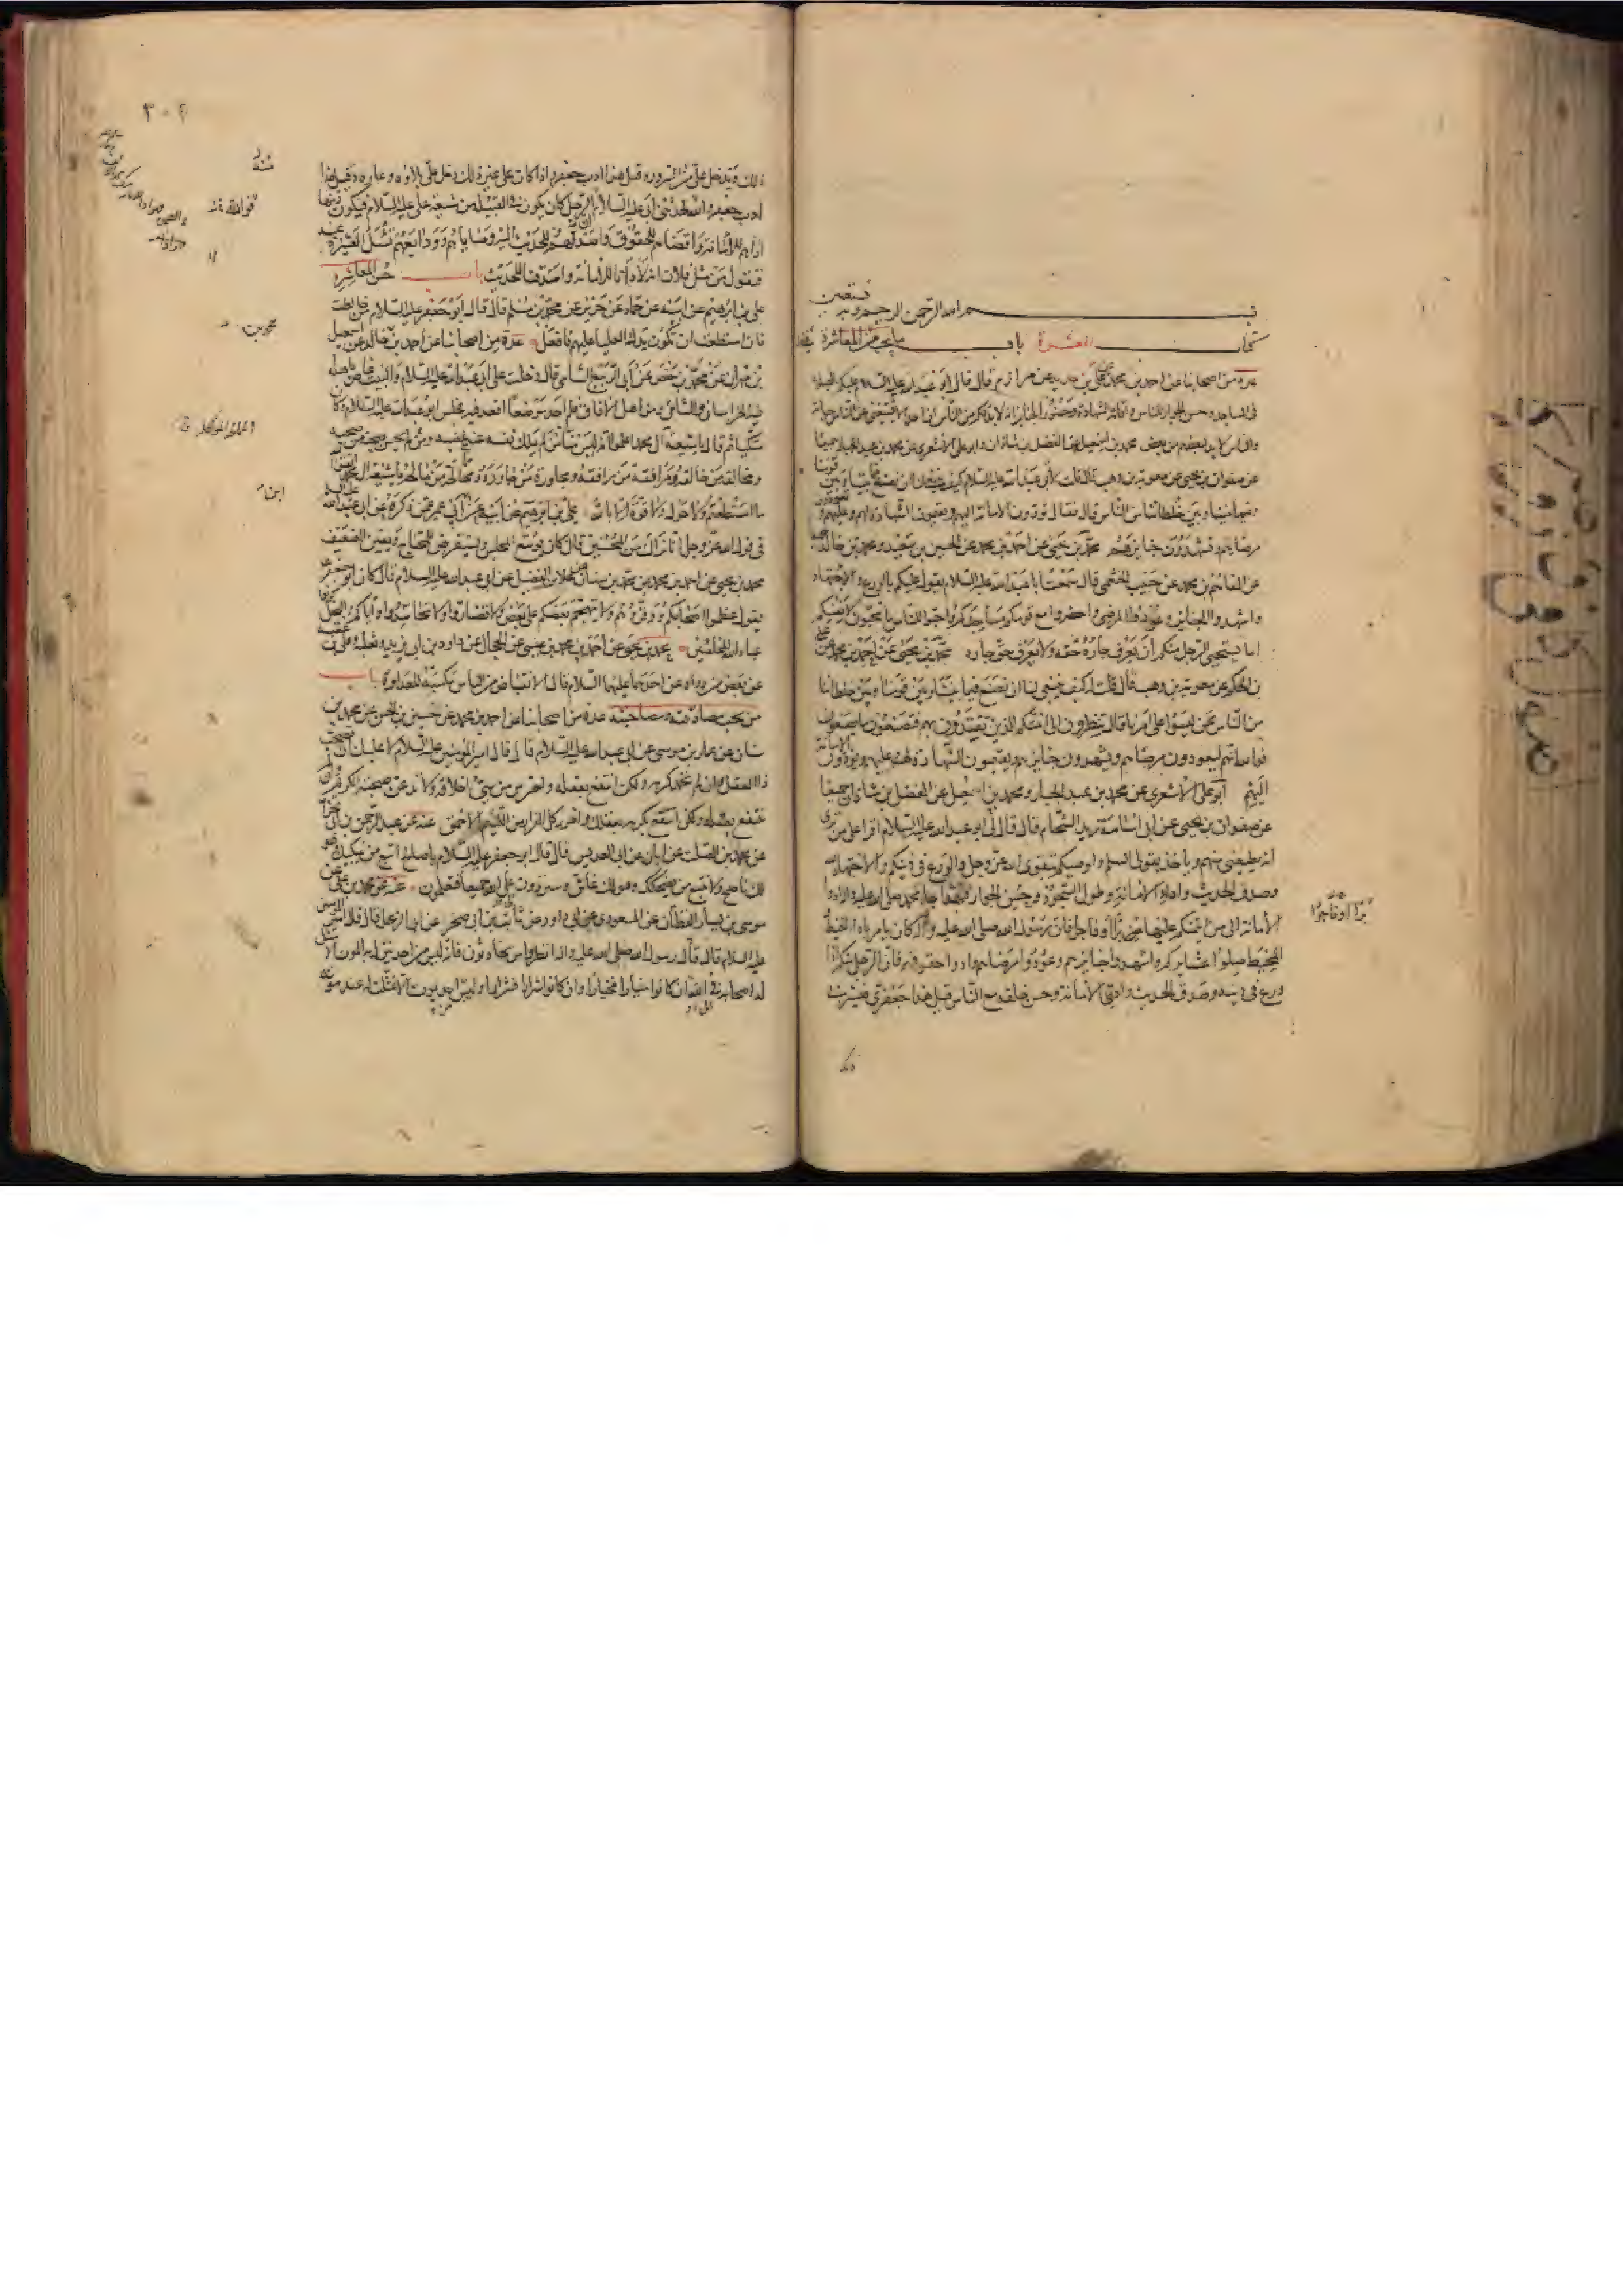 بسم الله الرحمن الرحيم وبه نستعين
كتاب العشرة باب ما يجب من المعاشرة
عدة من اصحابنا عن احمد بن محمد عن علي بن حديد عن مرازم قال قال ابو عبد الله عليه السلام عليكم بالصلوة
في المساجد وحسن الجوار للناس واقامة الشهادة وحضور الجنايز انه لابد لكم من الناس ان احدا لا يستغني عن الناس حياته
والناس لابد لبعضهم من بعض محمد بن اسمعيل عن الفضل بن شاذان وابو علي الاشعري عن محمد بن عبد الجبار جميعا
عن صفوان بن يحيى عن معوية بن وهب قال قلت لابي عبد الله عليه السلام كيف ينبغي لنا ان نصنع فيما بيننا وبين قومنا
وفيما بيننا وبين خلطائنا من الناس قال فقال تؤدون الامانة اليهم وتقيمون الشهادة لهم وعليهم وتعودون
مرضاهم وتشهدون جنايزهم محمد بن يحيى عن احمد بن محمد عن الحسين بن سعيد ومحمد بن خالد
عن القاسم بن محمد عن حبيب الخثعمي قال سمعت ابا عبد الله عليه السلام يقول عليكم بالورع والاجتهاد
واشهدوا الجنايز وعودوا المرضى واحضروا مع قومكم مساجدكم واحبوا للناس ما تحبون لانفسكم
اما يستحيي الرجل منكم ان يعرف جاره حقه ولا يعرف حق جاره محمد بن يحيى عن احمد بن محمد عن علي
بن الحكم عن معوية بن وهب قال قلت له كيف ينبغي لنا ان نصنع فيما بيننا وبين قومنا وبين خلطائنا
من الناس ممن ليسوا على امرنا قال تنظرون الى ائمتكم الذين تقتدون بهم فتصنعون ما يصنعون
فوالله انهم ليعودون مرضاهم ويشهدون جنايزهم ويقيمون الشهادة لهم وعليهم ويؤدون الامانة
اليهم ابو علي الاشعري عن محمد بن عبد الجبار ومحمد بن اسمعيل عن الفضل بن شاذان جميعا
عن صفوان بن يحيى عن ابي اسامة زيد الشحام قال قال لي ابو عبد الله عليه السلام اقرا على من ترى
انه يطيعني منهم وياخذ بقولي السلم واوصيكم بتقوى الله عز وجل والورع في دينكم والاجتهاد لله
وصدق الحديث واداء الامانة وطول السجود وحسن الجوار فبهذا جاء محمد صلى الله عليه واله ادوا
الامانة الى من ائتمنكم عليها برا او فاجرا فان رسول الله صلى الله عليه واله كان يامر باداء الخيط
والمخيط صلوا عشايركم واشهدوا جنايزهم وعودوا مرضاهم وادوا حقوقهم فان الرجل منكم اذا
ورع في دينه وصدق الحديث وادى الامانة وحسن خلقه مع الناس قيل هذا جعفري فيسرني
برا او فاجرا
ذلك
٣٠٤
ذلك ويدخل علي منه السرور وقيل هذا ادب جعفر واذا كان على غير ذلك دخل علي بلاؤه وعاره وقيل هذا
ادب جعفر والله لحدثني ابي عليه السلام ان الرجل كان يكون في القبيلة من شيعة علي عليه السلام فيكون زينها
اداهم للامانة واقضاهم للحقوق واصدقهم للحديث اليه وصاياهم وودايعهم تسئل العشيرة عنه
فتقول من مثل فلان انه لادانا للامانة واصدقنا للحديث باب حسن المعاشرة
علي بن ابرهيم عن ابيه عن حماد عن حريز عن محمد بن مسلم قال قال ابو جعفر عليه السلام من خالطت
فان استطعت ان تكون يدك العليا عليهم فافعل عدة من اصحابنا عن احمد بن محمد بن خالد عن اسمعيل
بن مهران عن محمد بن حفص عن ابي الربيع الشامي قال دخلت على ابي عبد الله عليه السلام والبيت غاص باهله
فيه الخراساني والشامي ومن اهل الافاق فلم اجد موضعا اقعد فيه فجلس ابو عبد الله عليه السلام وكان
متكيا ثم قال يا شيعة آل محمد اعلموا انه ليس منا من لم يملك نفسه عند غضبه ومن لم يحسن صحبة من صحبه
ومخالقة من خالقه ومرافقة من رافقه ومجاورة من جاوره وممالحة من مالحه يا شيعة آل محمد اتقوا الله
ما استطعتم ولا حول ولا قوة الا بالله علي بن ابرهيم عن ابيه عن ابن ابي عمير عمن ذكره عن ابي عبد الله عليه السلام
في قول الله عز وجل انا نراك من المحسنين قال كان يوسع المجلس ويستقرض للمحتاج ويعين الضعيف
محمد بن يحيى عن احمد بن محمد عن محمد بن سنان عن علاء بن الفضيل عن ابي عبد الله عليه السلام قال كان ابو جعفر
يقول عظموا اصحابكم ووقروهم ولا يتهجم بعضكم على بعض ولا تضاروا ولا تحاسدوا واياكم والبخل كونوا
عباد الله المخلصين محمد بن يحيى عن احمد بن محمد بن عيسى عن الحجال عن داود بن ابي يزيد وثعلبة وعلي بن عقبة
عن بعض من رواه عن احدهما عليهما السلام قال الانقباض من الناس مكسبة للعداوة باب
من يجب مصادقته ومصاحبته عدة من اصحابنا عن احمد بن محمد عن حسين بن الحسن عن محمد بن
سنان عن عمار بن موسى عن ابي عبد الله عليه السلام قال قال امير المؤمنين عليه السلام لا عليك ان تصحب
ذا العقل وان لم تحمد كرمه ولكن انتفع بعقله واحترس من سيئ اخلاقه ولا تدعن صحبة الكريم وان لم
تنتفع بعقله ولكن انتفع بكرمه بعقلك وافرر كل الفرار من اللئيم الاحمق عنه عن عبد الرحمن بن ابي نجران
عن محمد بن الصلت عن ابان عن ابي العديس قال قال ابو جعفر عليه السلام يا صالح اتبع من يبكيك وهو
لك ناصح ولا تتبع من يضحكك وهو لك غاش وستردون على الله جميعا فتعلمون عنه عن محمد بن علي عن
موسى بن يسار القطان عن المسعودي عن ابي داود عن ثابت بن ابي صخر عن ابي الزعلي قال قال امير المؤمنين
عليه السلام قال قال رسول الله صلى الله عليه واله انظروا من تحادثون فانه ليس من احد ينزل به الموت الا مثل
له اصحابه في الله ان كانوا خيارا فخيارا وان كانوا شرارا فشرارا وليس احد يموت الا تمثلت له عند موته
فوالله
محمد بن
ابن